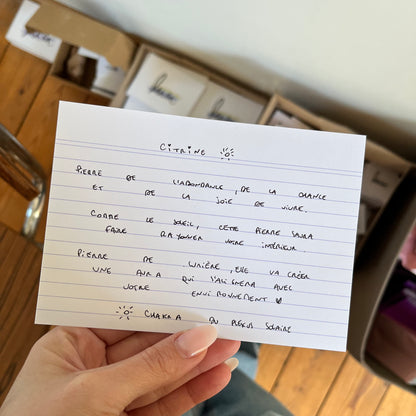 CITRINE
PIERRE DE L'ABONDANCE, DE LA CHANCE
ET DE LA JOIE DE VIVRE.
COMME LE SOLEIL, CETTE PIERRE SAURA
FAIRE RAYONNER VOTRE INTÉRIEUR.
PIERRE DE LUMIÈRE, ELLE VA CRÉER
UNE AURA QUI S'ALIGNERA AVEC
VOTRE ENVIRONNEMENT
CHAKRA DU PLEXUS SOLAIRE